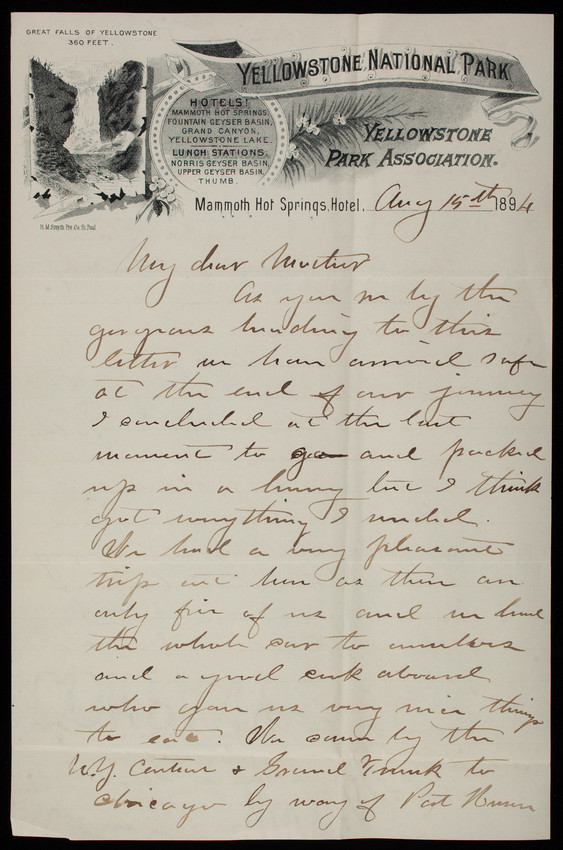 GREAT FALLS OF YELLOWSTONE
360 FEET.
YELLOWSTONE NATIONAL PARK
HOTELS!
MAMMOTH HOT SPRINGS,
FOUNTAIN GEYSER BASIN,
GRAND CANYON,
YELLOWSTONE LAKE.
LUNCH STATIONS,
NORRIS GEYSER BASIN,
UPPER GEYSER BASIN,
THUMB.
YELLOWSTONE
PARK ASSOCIATION.
Mammoth Hot Springs, Hotel, Aug 15th 1894
My dear Mother
As you see by the
gorgeous heading to this
letter we have arrived safe
at the end of our journey
I concluded at the last
moment to go and packed
up in a hurry but I think
got everything I needed.
We had a very pleasant
trip out here as there are
only five of us and we have
the whole car to ourselves
and a good cook aboard
who gave us very nice things
to eat. We came by the
N.Y. Central & Grand Trunk to
Chicago by way of Port Huron